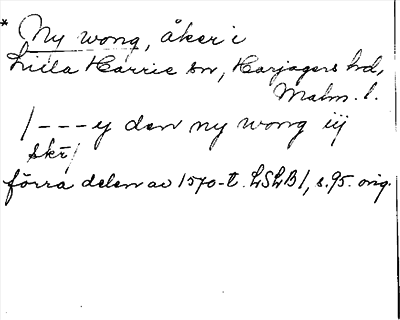 * Ny wong, åker i
Lilla Harrie sn, Harjagers hd,
Malm. l.
/---y den ny wong iij
skr/
förra delen av 1570-t. LSLB1, s. 95. orig.